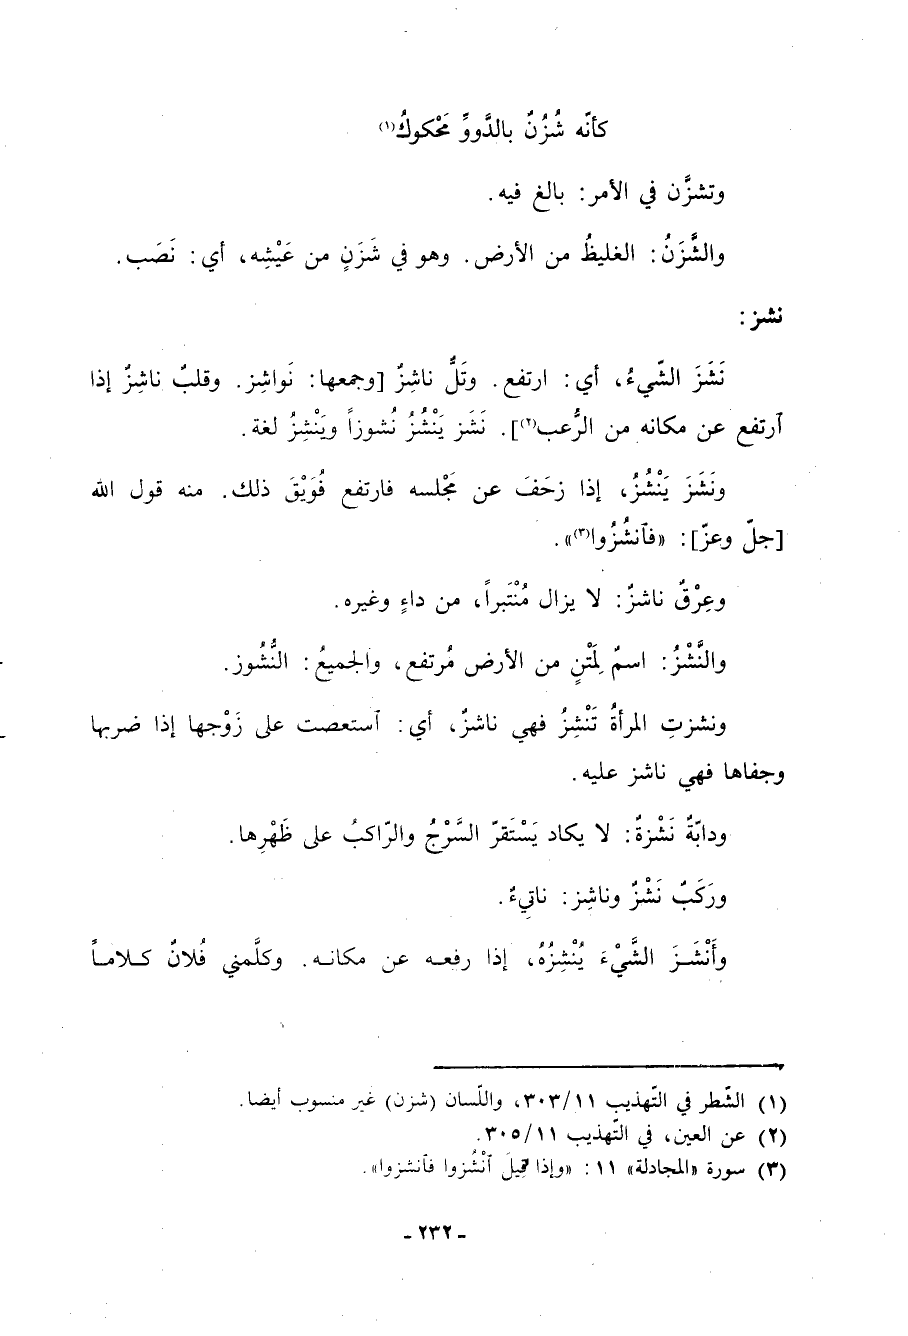 كأنّه شُزُنٌ بالدَّووِّ مَحْكوكُ(١)
وتشزَّن في الأمر: بالغ فيه.
والشَّزَنُ: الغليظُ من الأرض. وهو في شَزَنٍ من عَيْشِه، أي: نَصَب.
نشز:
نَشَزَ الشّيءُ، أي: ارتفع. وتَلٌّ ناشِزٌ [وجمعها: نَواشِز. وقلبٌ ناشِزٌ إذا
ٱرتفع عن مكانه من الرُّعب(٢)]. نَشَز يَنْشُزُ نُشوزاً ويَنْشِزُ لغة.
ونَشَزَ يَنْشُزُ، إذا زحَفَ عن مَجْلسه فارتفع فُوَيْقَ ذلك. منه قول الله
[جلّ وعزّ]: «فٱنشُزُوا(٣)».
وعِرْقٌ ناشزٌ: لا يزال مُنْتَبراً، من داءٍ وغيره.
والنَّشْزُ: اسمٌ لِمَتْنٍ من الأرض مُرتفع، والجميعُ: النُّشُوز.
ونشزتِ المرأةُ تَنْشِزُ فهي ناشزٌ، أي: ٱستعصت على زَوْجها إذا ضربها
وجفاها فهي ناشز عليه.
ودابّةٌ نَشْزةٌ: لا يكاد يَسْتَقرّ السَّرْجُ والرّاكبُ على ظَهْرِها.
ورَكَبٌ نَشْزٌ وناشِز: ناتِيءٌ.
وأَنْشَــزَ الشَّيْءَ يُنْشِزُهُ، إذا رفعــه عن مكانــه. وكلَّمني فُلانٌ كــلامــاً
(١) الشّطر في التّهذيب ٣٠٣/١١، واللّسان (شزن) غير منسوب أيضا.
(٢) عن العين، في التّهذيب ٣٠٥/١١.
(٣) سورة «المجادلة» ١١: «وإذا قيلَ ٱنْشُزوا فٱنشزوا».
- ٢٣٢ -